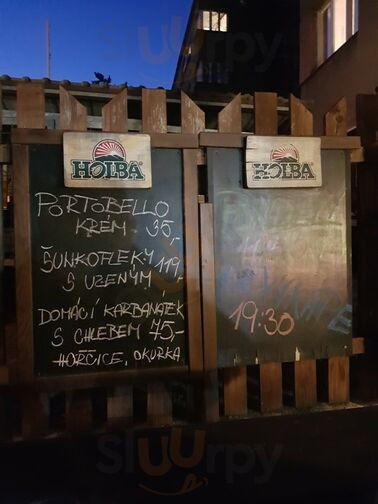 HOLBA
PORTOBELLO
KRÉM - 35,-
ŠUNKOFLEKY 119,-
S UZENÝM
DOMÁCÍ KARBANÁTEK
S CHLEBEM 75,-
HOŘČICE, OKURKA
HOLBA
19:30
Sluurpy
Sluurpy